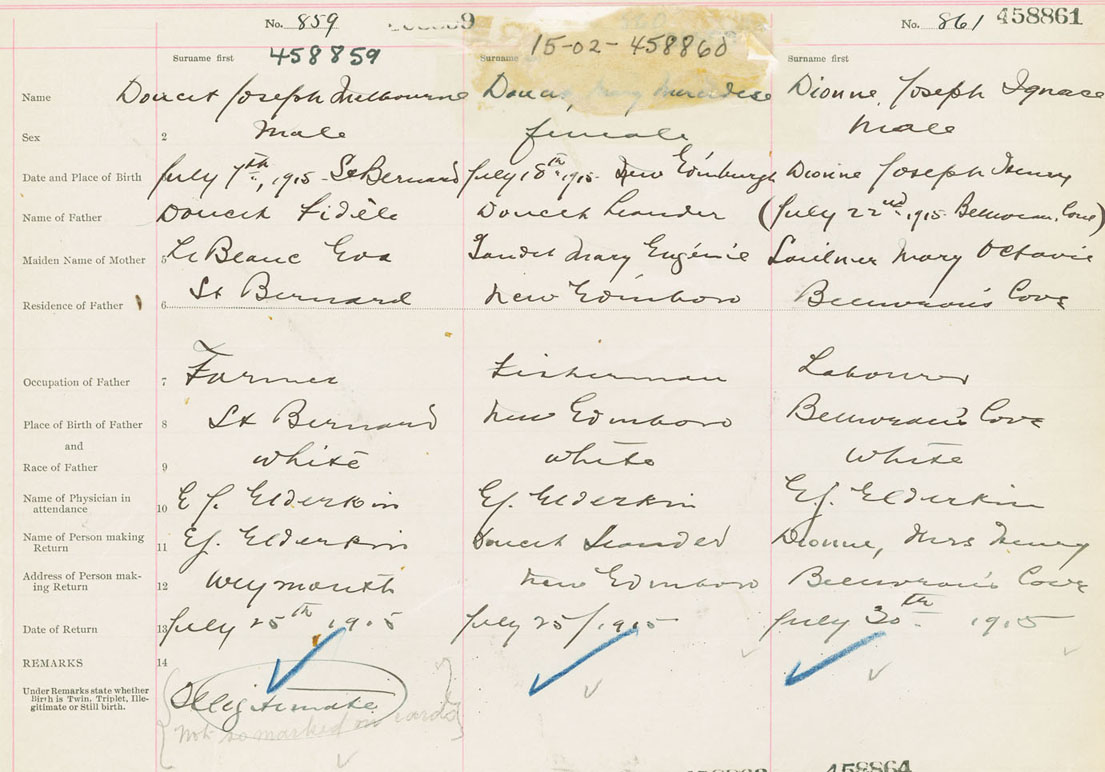 No. 859 No. 861 458861
15-02-458860
Surname first 458859 Surname Surname first
Name Doucet Joseph Melbourne Doucet, Mary Mercedese Dionne, Joseph Ignace
Sex 2 Male female Male
Date and Place of Birth July 7th, 1915 St Bernard July 18th 1915 New Edinburgh Dionne Joseph Henry
Name of Father Doucet Fidèle Doucet Leander (July 22nd 1915 Cove)
Maiden Name of Mother 5 Le Blanc Eva Mary Eugénie Mary Octavie
Residence of Father 6 St Bernard New Edinboro Cove
Occupation of Father 7 Farmer Fisherman Labourer
Place of Birth of Father 8 St Bernard New Edinboro Cove
and
Race of Father 9 white white White
Name of Physician in attendance 10 E J. Elderkin EJ. Elderkin EJ. Elderkin
Name of Person making Return 11 EJ. Elderkin Doucet Leander Dionne, Mrs Henry
Address of Person making Return 12 Weymouth New Edinboro Cove
Date of Return 13 July 25th 1915 July 25/1915 July 30th 1915
REMARKS 14
Under Remarks state whether
Birth is Twin, Triplet, Ille-
gitimate or Still birth.
Illegitimate
Not so marked on cards
458864